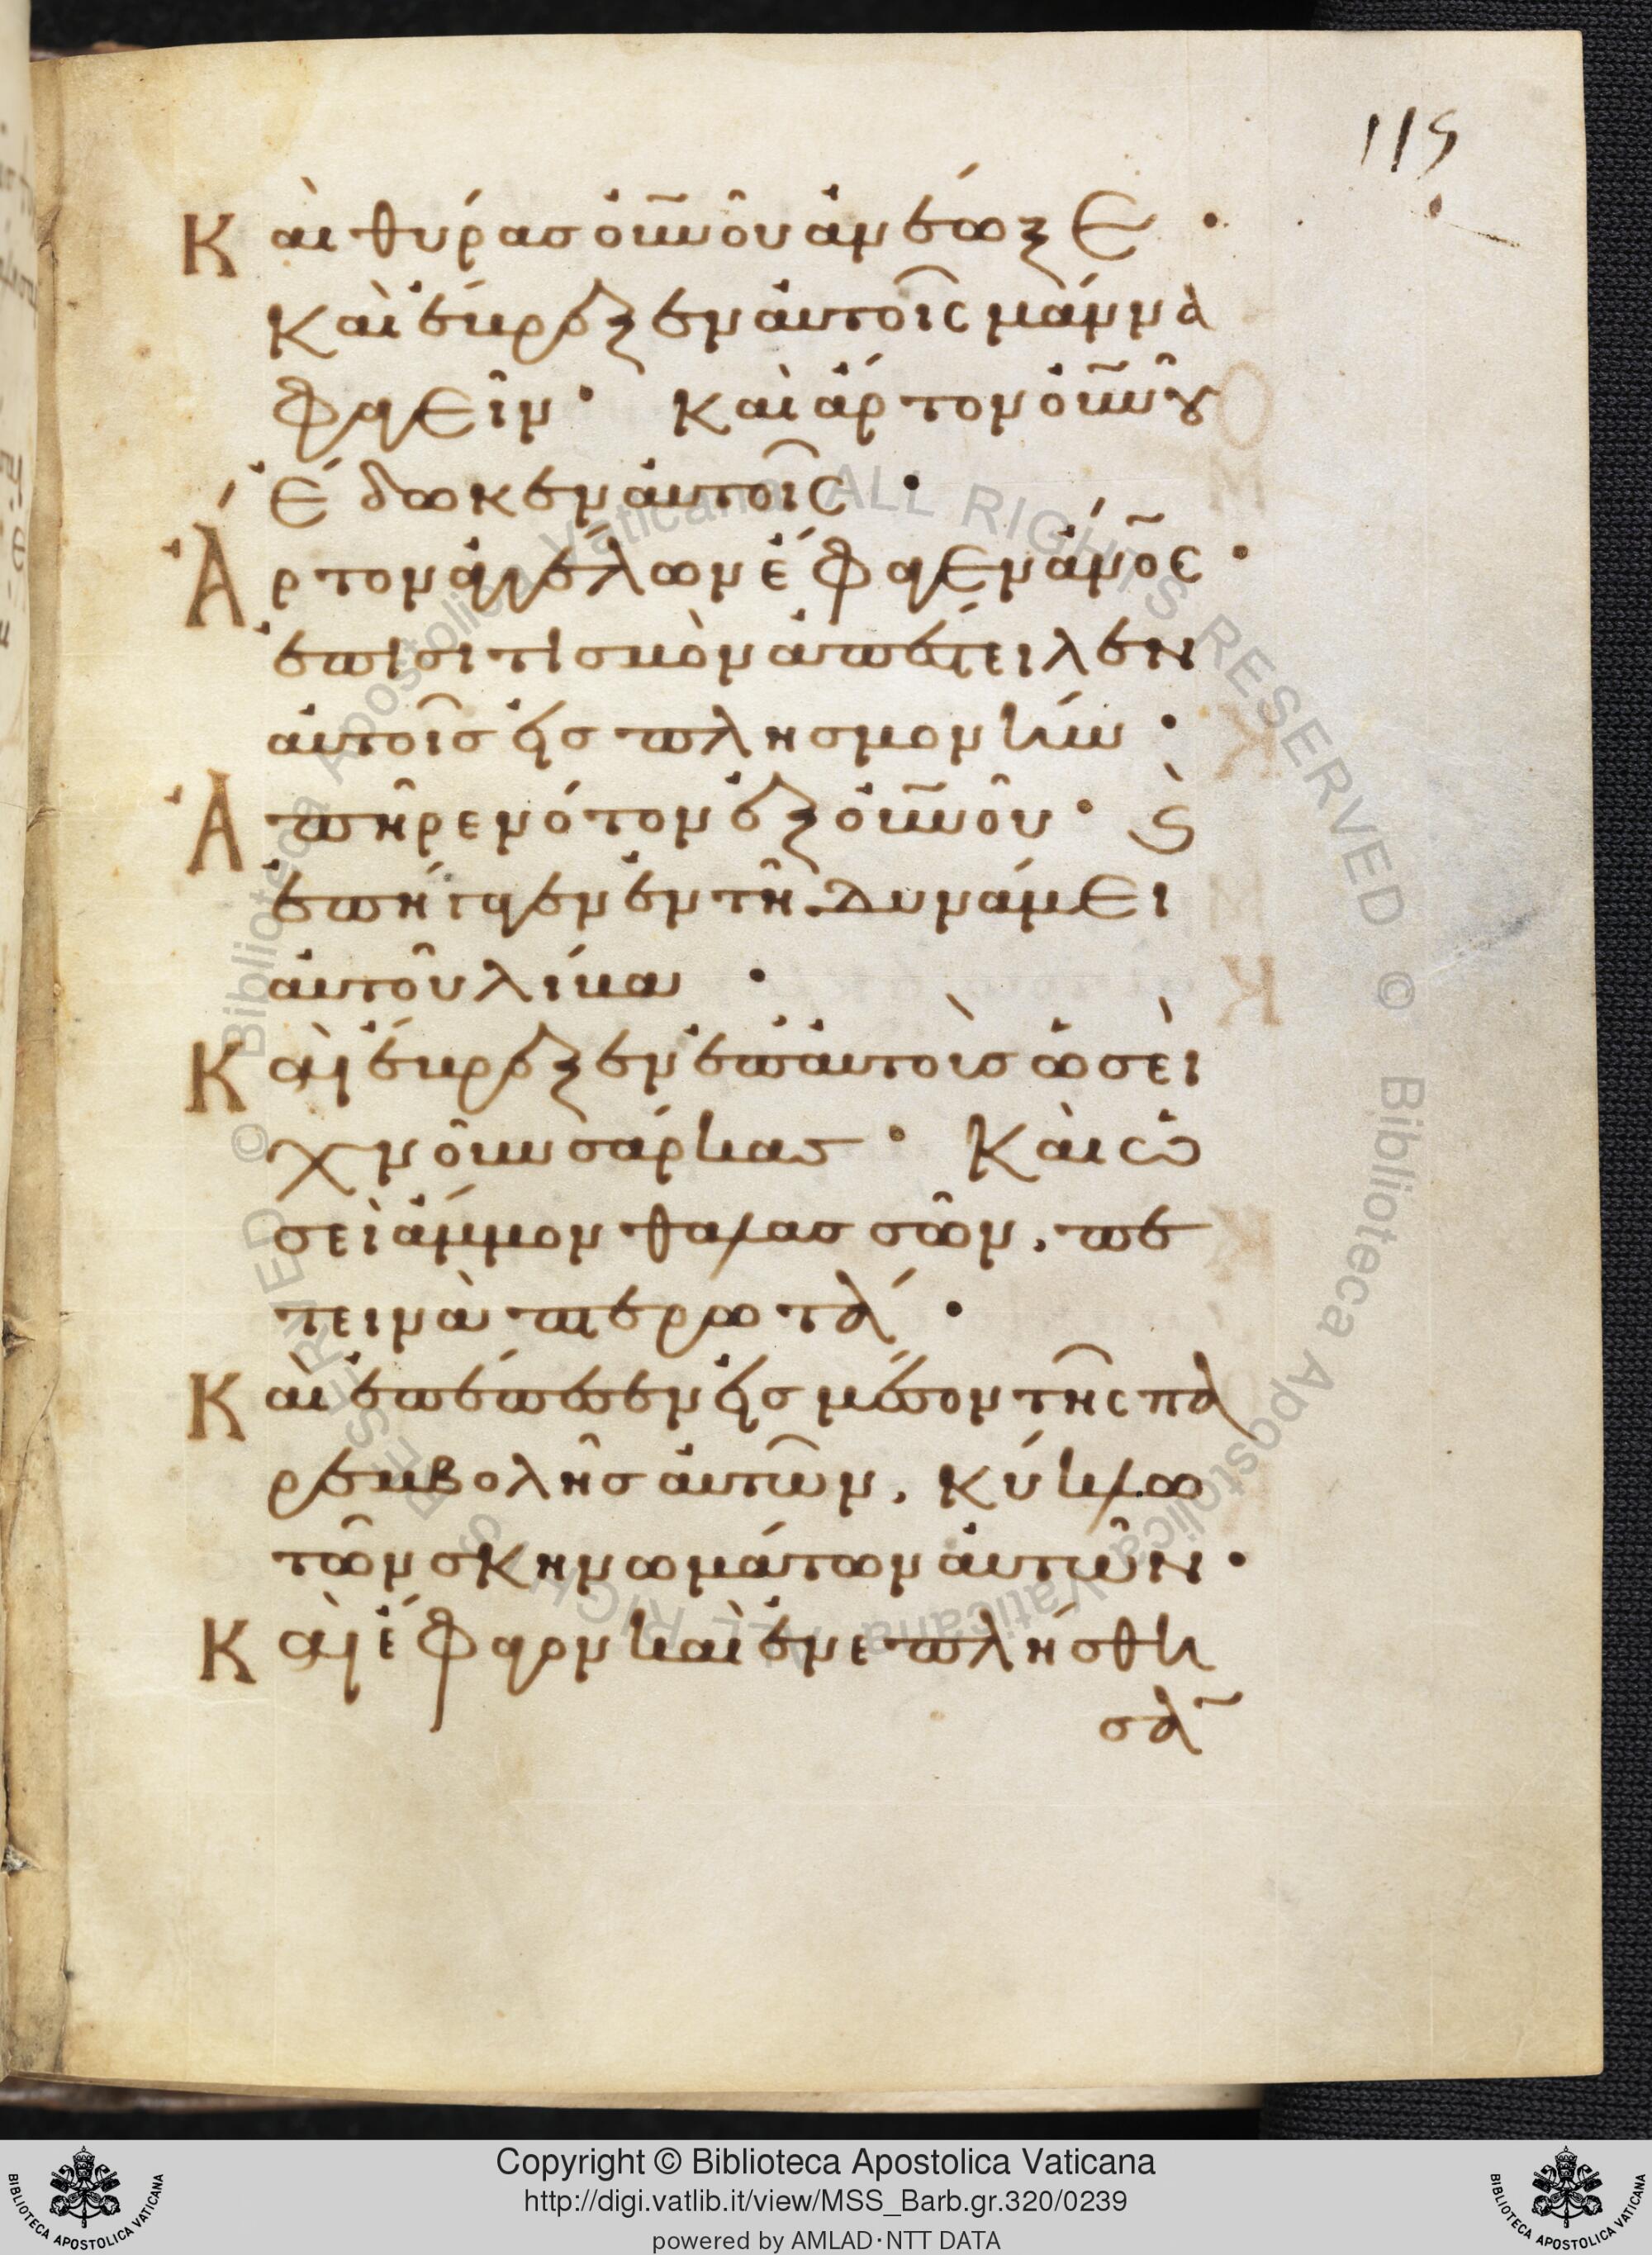 115
Καὶ θύρας οὐ̅νοῦ ἀνέωξε ·
καὶ ἔβρεξεν αὐτοῖς μάννα
φαγεῖν · καὶ ἄρτον οὐ̅νοῦ
ἔδωκεν αὐτοῖς ·
Ἄρτον ἀγγέλων ἔφαγεν ἄν̅ος ·
ἐπισιτισμὸν ἀπέστειλεν
αὐτοῖς εἰς πλησμονήν ·
Ἀπῆρε νότον ἐξ οὐ̅νοῦ · ϗ
ἐπήγαγεν ἐν τῆ δυνάμει
αὐτοῦ λίβα ·
Καὶ ἔβρεξεν ἐπ' αὐτοὺς ὡσεὶ
χνοῦν σάρκας · καὶ ὡ
σεὶ ἄμμον θαλασσῶν, πε
τεινὰ πτερωτά ·
Καὶ ἐπέπεσεν εἰς μέσον τῆς πα
ρεμβολῆς αὐτῶν, κύκλω
τῶν σκηνωμάτων αὐτῶν ·
Καὶ ἔφαγον καὶ ἐνεπλήσθη
σα̅
Copyright © Biblioteca Apostolica Vaticana
http://digi.vatlib.it/view/MSS_Barb.gr.320/0239
powered by AMLAD·NTT DATA
BIBLIOTECA APOSTOLICA VATICANA
BIBLIOTECA APOSTOLICA VATICANA
© Biblioteca Apostolica Vaticana ALL RIGHTS RESERVED © Biblioteca Apostolica Vaticana ALL RIGHTS RESERVED